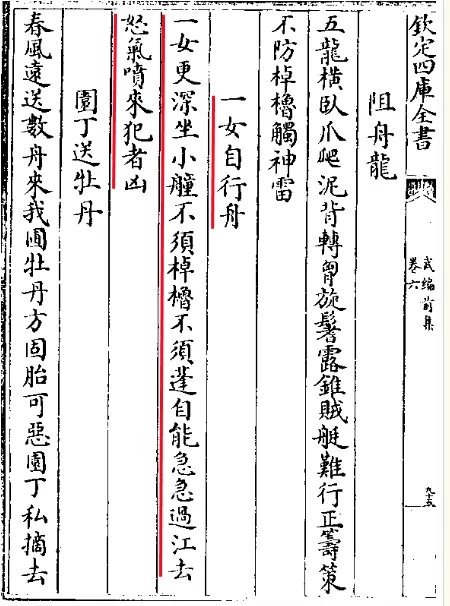 欽定四庫全書
武編前集
卷六
九十五
阻舟龍
五龍橫臥爪爬泥背轉胷旋鬐露錐賊艇難行正籌策
不防棹櫓觸神雷
一女自行舟
一女更深坐小艟不須棹櫓不須蓬自能急急過江去
怒氣噴來犯者凶
園丁送牡丹
春風遠送數舟來我圃牡丹方固胎可惡園丁私摘去